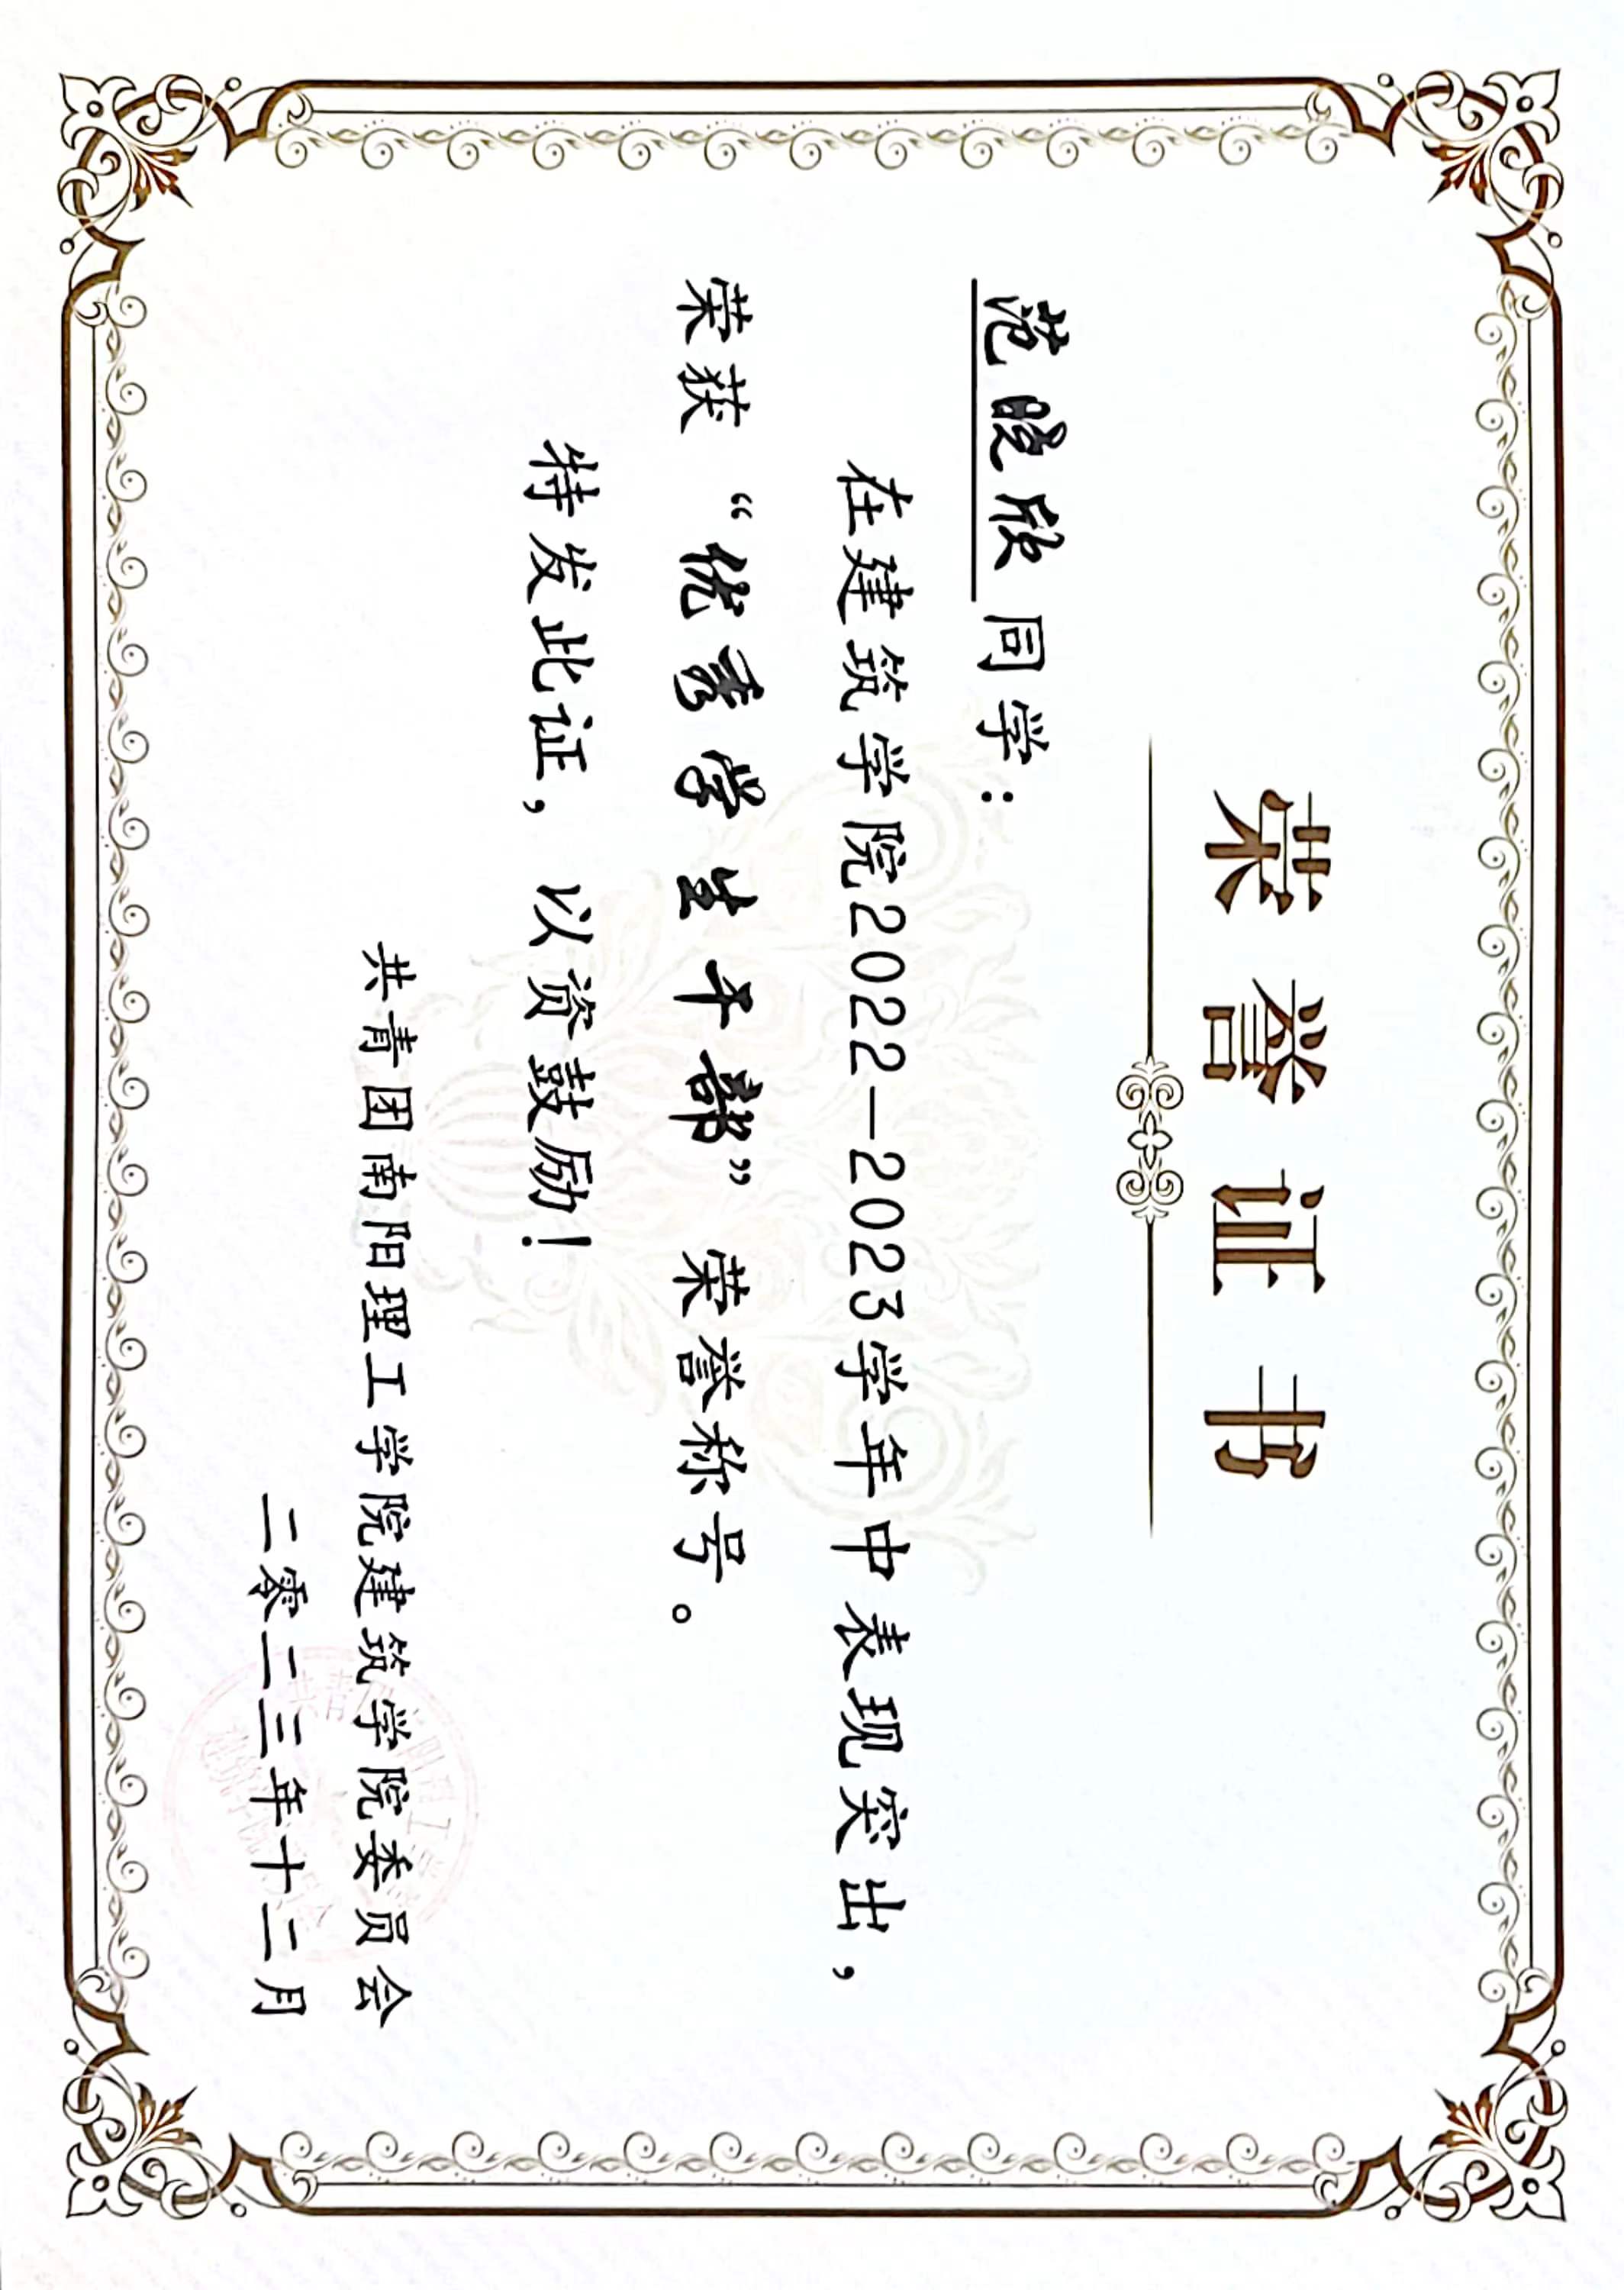 荣誉证书
范晓欣同学：
在建筑学院2022—2023学年中表现突出，
荣获“优秀学生干部”荣誉称号。
特发此证，以资鼓励！
共青团南阳理工学院建筑学院委员会
二零二三年十二月